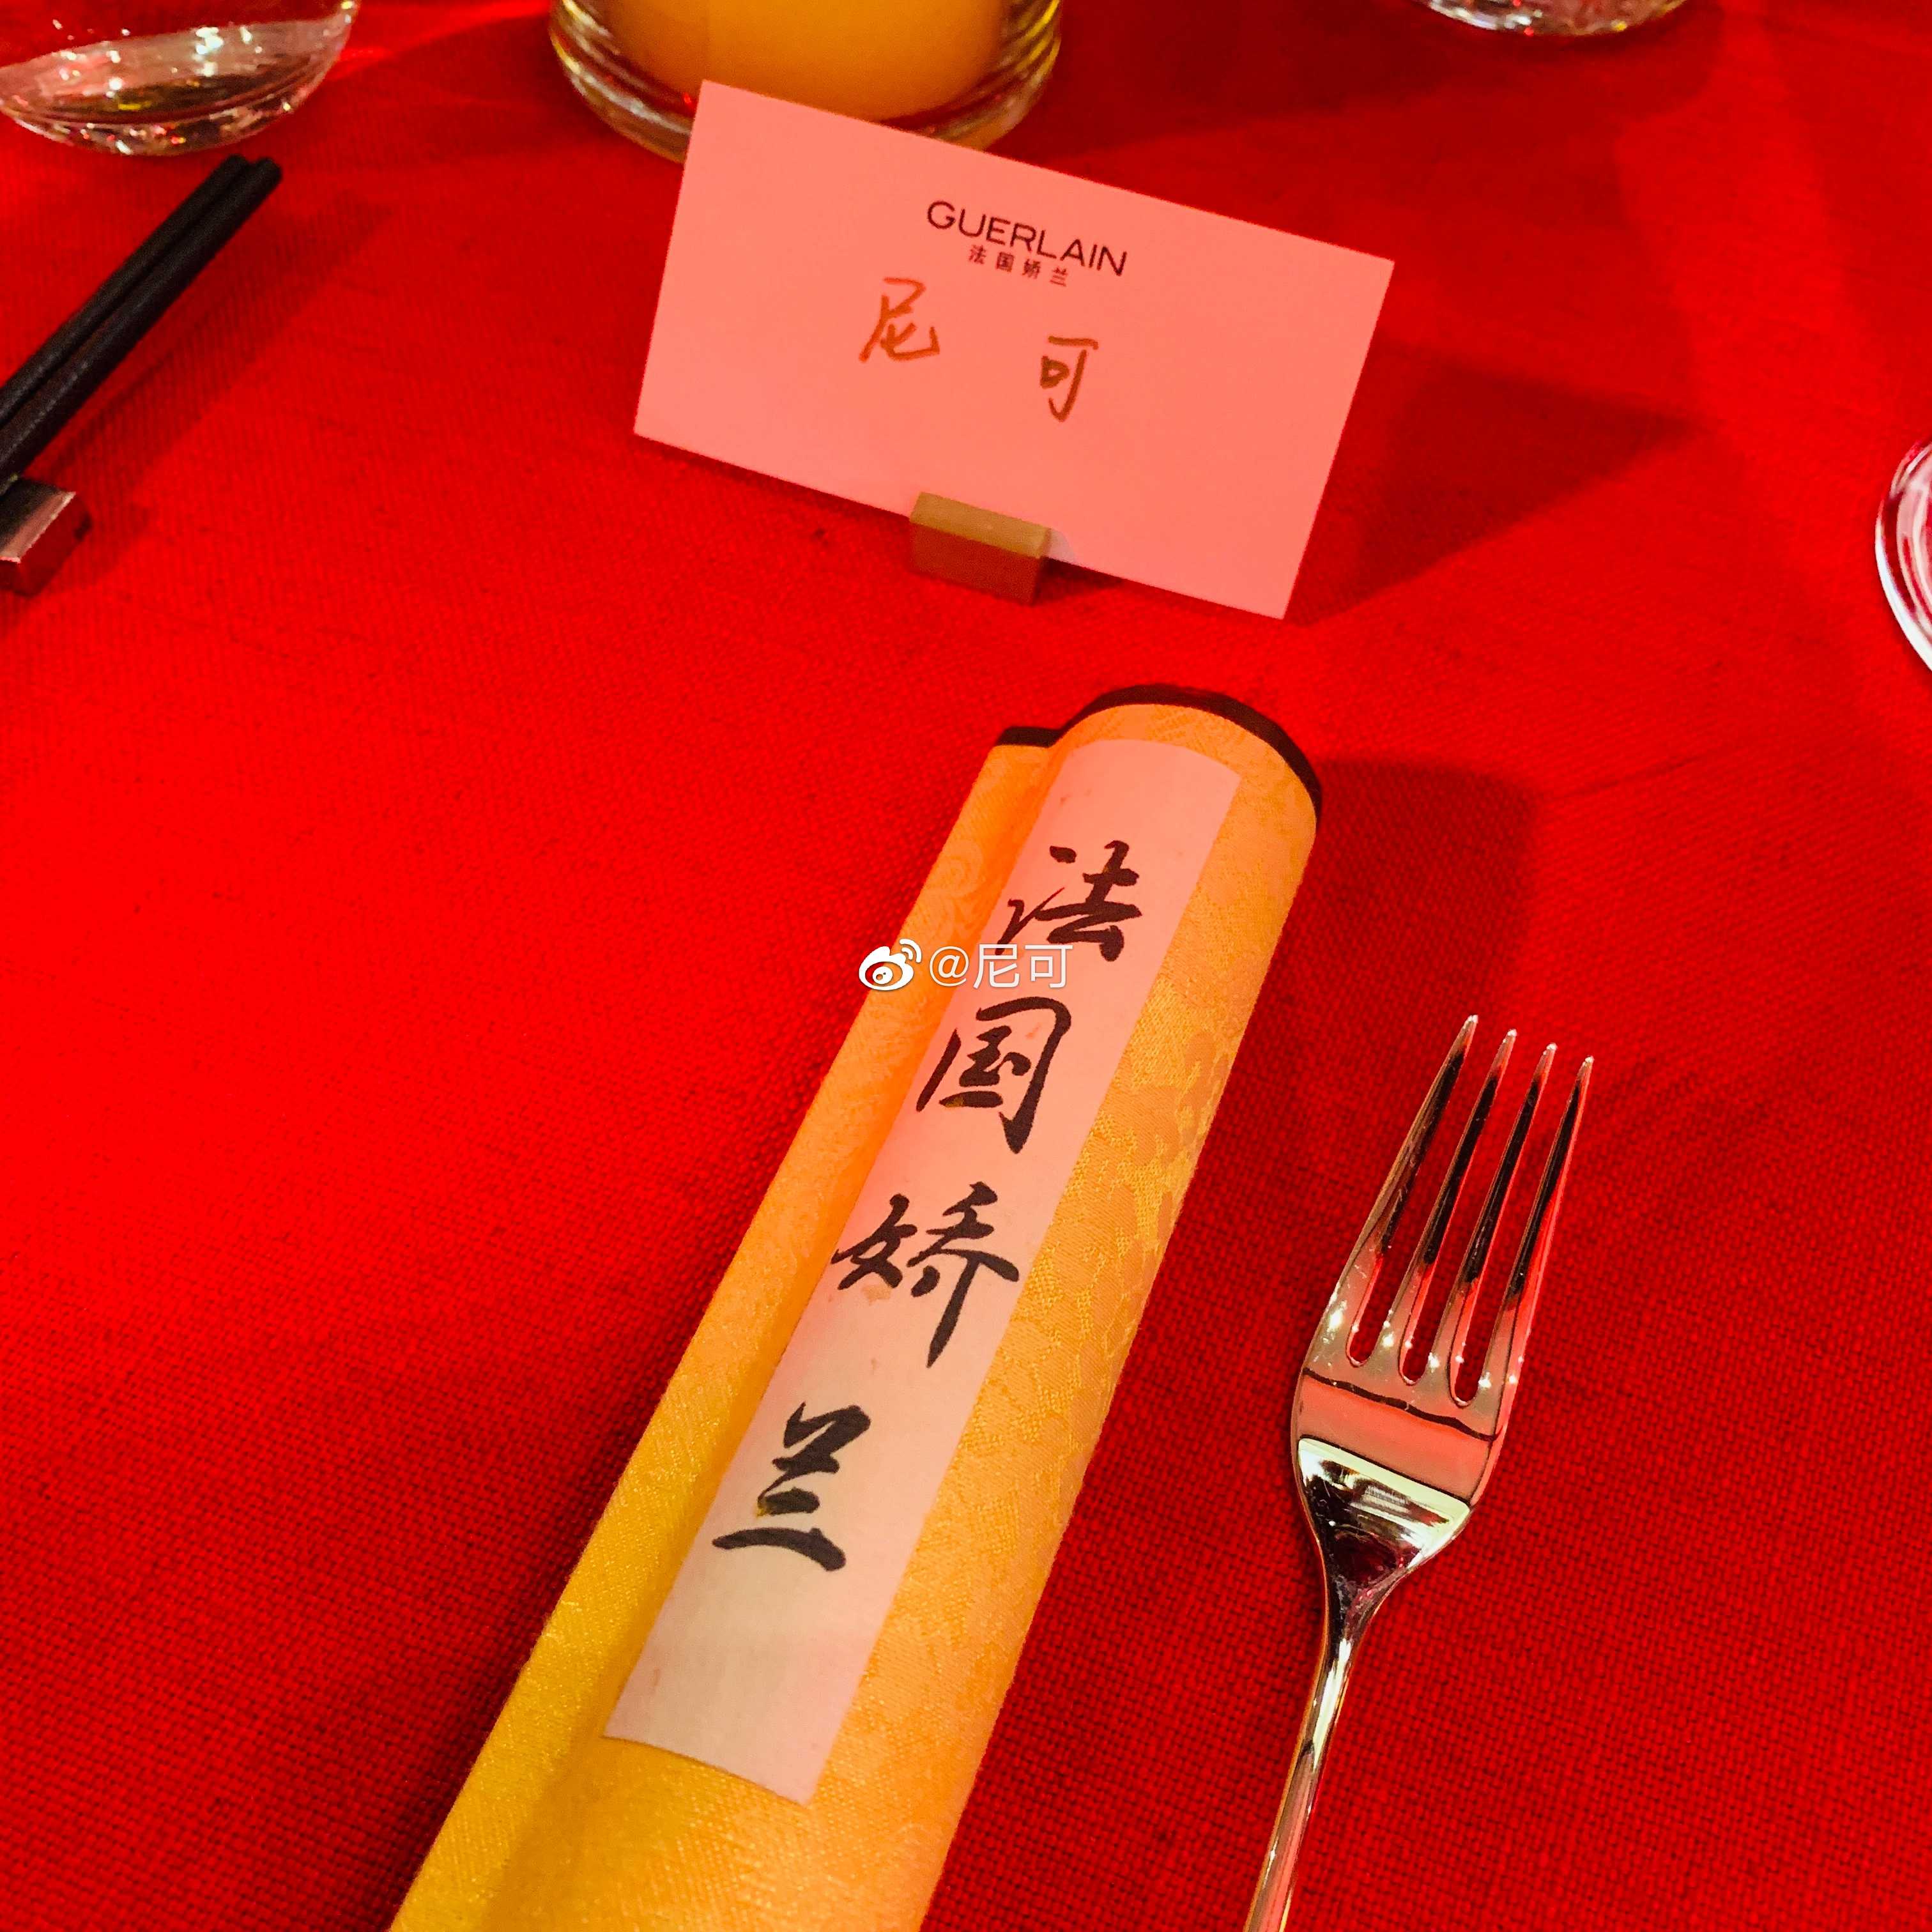 GUERLAIN
法国娇兰
尼可
法国娇兰
@尼可